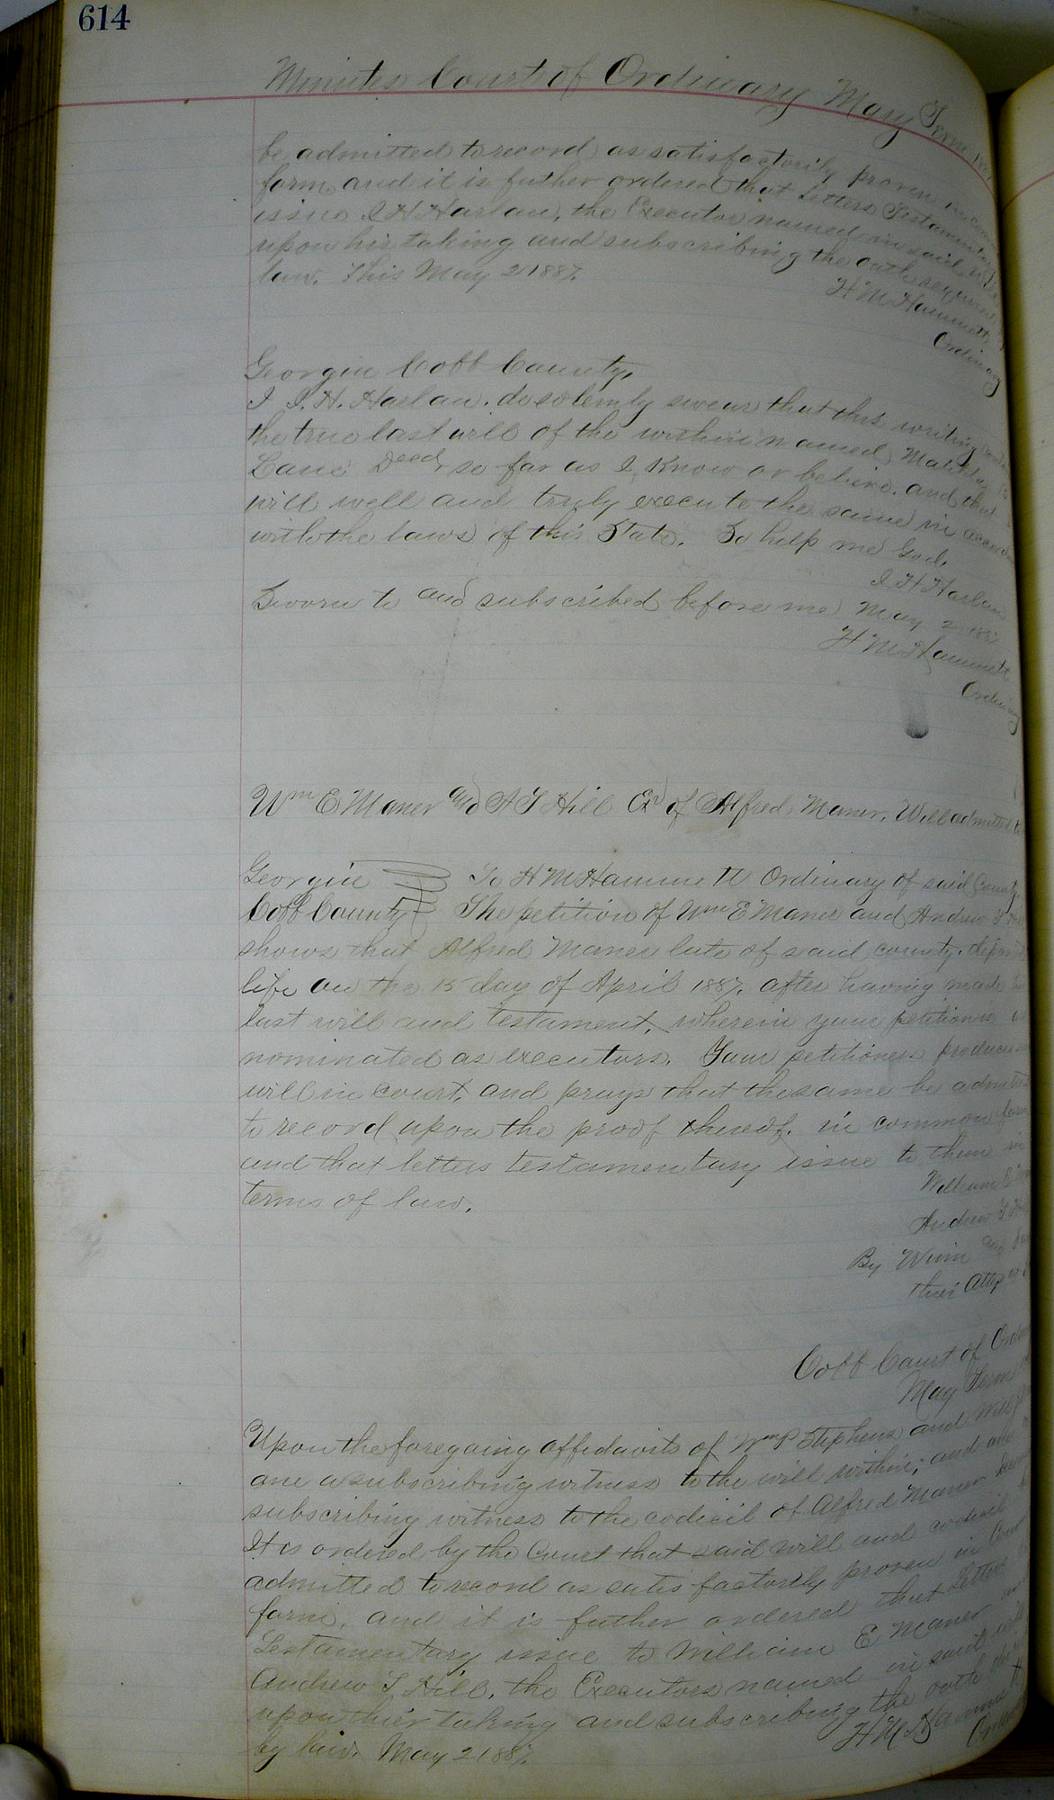 614
Minutes Court of Ordinary May Term
be admitted to record as satisfactorily proven in
form and it is futher ordered that Letters Testamentary
issue I H Harlan, the Executor named in said will
upon his taking and subscribing the oath required
law. This May 2 1887.
H M Hammett
Ordinary
Georgia Cobb County,
I I. H. Harlan. do solemly swear that this writing
the true last will of the within named
Lane Decd so far as I Know or believe. and that
will well and truly execute the same in
with the laws of this State. So help me God.
I H Harlan
Sworn to and subscribed before me May 2 1887
H M Hammett
Ordinary
Wm E Maner and A T Hill Exr of Alfred Maner. Will admitted to
Georgia To H M Hammett Ordinary of said County
Cobb County The petition of Wm E Maner and Andrew T
shows that Alfred Maner late of said county. depart
life on the 15 day of April 1887. after having made
last will and testament, wherein your petitioners
nominated as executors. Your petitioners produce
will in court, and prays that the same be admitted
to record upon the proof thereof. in common form
and that letters testamentary issue to them in
terms of law.
William E
Andrew T
By Winn and
their Attys
Cobb Court of Ordi
May Term
Upon the foregoing affidavits of Wm P Stephens and Will
one a subscribing witness to the will within; and
subscribing witness to the codicil of Alfred Maner
It is ordered by the Court that said will and codicil
admitted to record as satisfactorily proven in
form, and it is futher ordered that Letters
Testamentary issue to William E Maner
Andrew T Hill, the Executors named in said will
upon their taking and subscribing the oath
by law. May 2 1887.
H M Hammett